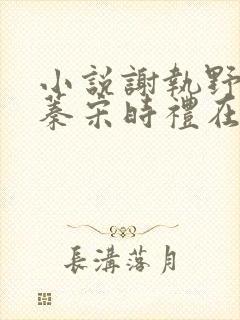 小說謝執野
蓁宋時禮在
長溝落月